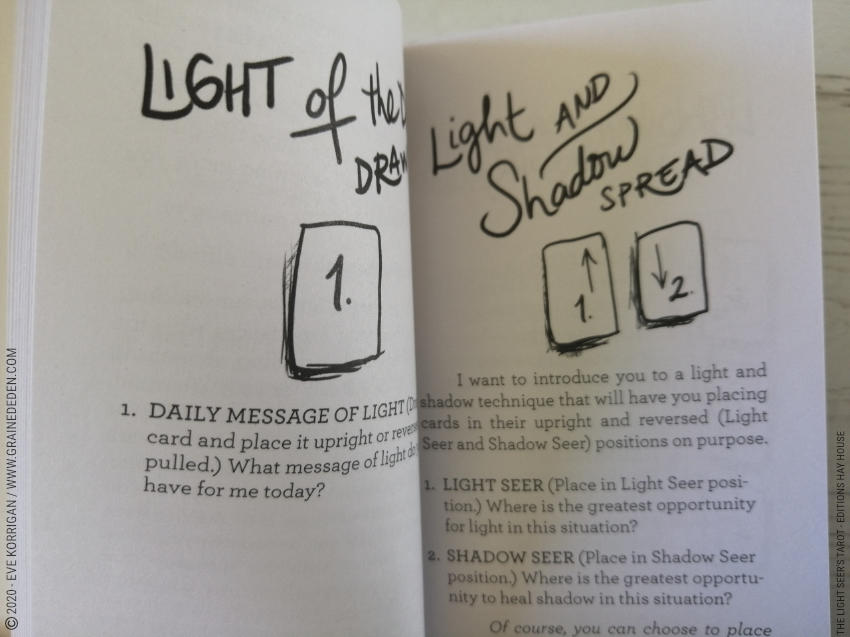 LIGHT of the
DRAW
1.
1. DAILY MESSAGE OF LIGHT
card and place it upright or reverse
pulled.) What message of light do
have for me today?
Light AND
Shadow
SPREAD
1.
2.
I want to introduce you to a light and
shadow technique that will have you placing
cards in their upright and reversed (Light
Seer and Shadow Seer) positions on purpose.
1. LIGHT SEER (Place in Light Seer posi-
tion.) Where is the greatest opportunity
for light in this situation?
2. SHADOW SEER (Place in Shadow Seer
position.) Where is the greatest opportu-
nity to heal shadow in this situation?
Of course, you can choose to place
© 2020 - EVE KORRIGAN / WWW.GRAINEDEDEN.COM
THE LIGHT SEER'S TAROT - EDITIONS HAY HOUSE